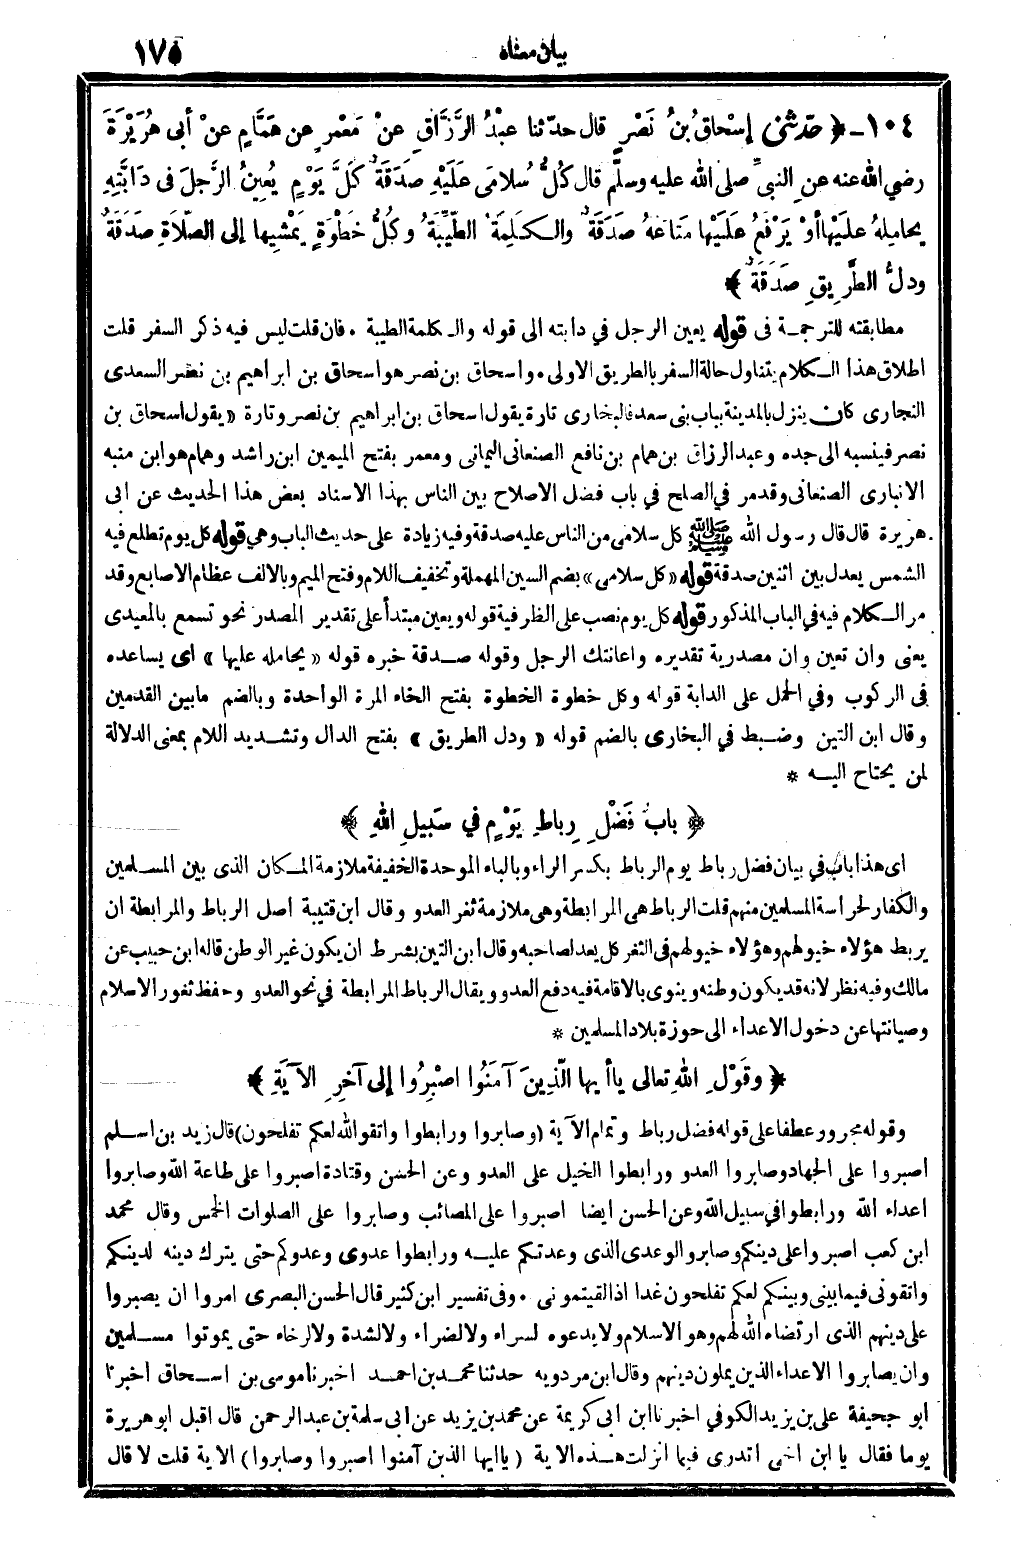 بيان معناه ١٧٥
١٠٤ - ﴿ حَدَّثني إسْحَاقُ بنُ نَصْرٍ قال حدّثنا عبْدُ الرَّزَّاقِ عنْ مَعْمَرٍ عن هَمَّامٍ عنْ أبى هُرَيْرَةَ
رضي الله عنه عنِ النبيِّ صلى الله عليه وسلَّم قال كُلُّ سُلامَى عَلَيْهِ صَدَقَةٌ كُلَّ يَوْمٍ يُعِينُ الرَّجلَ فى دَابَّتِهِ
يحامِلهُ علَيْها أوْ يَرْفَعُ عَلَيْها مَتَاعَهُ صَدَقَةٌ والكَلِمَةُ الطّيِّبَةُ وكُلُّ خَطْوَةٍ يَمْشِيها إلى الصَّلَاةِ صَدَقَةٌ
ودلُّ الطَّرِيقِ صَدَقَةٌ ﴾
مطابقته للترجمة فى قوله يعين الرجل في دابته الى قوله والكلمة الطيبة . فان قلت ليس فيه ذكر السفر قلت
اطلاق هذا الكلام يتناول حالة السفر بالطريق الاولى . واسحاق بن نصر هو اسحاق بن ابراهيم بن نصر السعدى
النجارى كان ينزل بالمدينة بباب بنى سعد فالبخارى تارة يقول اسحاق بن ابراهيم بن نصر وتارة « يقول اسحاق بن
نصر فينسبه الى جده وعبد الرزاق بن همام بن نافع الصنعانى اليمانى ومعمر بفتح الميمين ابن راشد وهمام هو ابن منبه
الانبارى الصنعانى وقد مر في الصلح في باب فضل الاصلاح بين الناس بهذا الاسناد بعض هذا الحديث عن ابى
هريرة قال قال رسول الله ﷺ كل سلامى من الناس عليه صدقة وفيه زيادة على حديث الباب وهي قوله كل يوم تطلع فيه
الشمس يعدل بين اثنين صدقة قوله « كل سلامى » بضم السين المهملة وتخفيف اللام وفتح الميم وبالالف عظام الاصابع وقد
مر الكلام فيه في الباب المذكور قوله كل يوم نصب على الظرفية قوله ويعين مبتدأ على تقدير المصدر نحو تسمع بالمعيدى
يعنى وان تعين وان مصدرية تقديره واعانتك الرجل وقوله صدقة خبره قوله « يحامله عليها » اى يساعده
فى الركوب وفي الحمل على الدابة قوله وكل خطوة الخطوة بفتح الخاء المرة الواحدة وبالضم مابين القدمين
وقال ابن التين وضبط في البخارى بالضم قوله « ودل الطريق » بفتح الدال وتشديد اللام بمعنى الدلالة
لمن يحتاج اليه *
﴿ بابُ فَضْلِ رِباطِ يَوْمٍ في سَبِيلِ اللهِ ﴾
اى هذا باب في بيان فضل رباط يوم الرباط بكسر الراء وبالباء الموحدة الخفيفة ملازمة المكان الذى بين المسلمين
والكفار لحراسة المسلمين منهم قلت الرباط هى المرابطة وهى ملازمة ثغر العدو وقال ابن قتيبة اصل الرباط والمرابطة ان
يربط هؤلاء خيولهم وهؤلاء خيولهم فى الثغر كل يعد لصاحبه وقال ابن التين بشرط ان يكون غير الوطن قاله ابن حبيب عن
مالك وفيه نظر لانه قد يكون وطنه وينوى بالاقامة فيه دفع العدو ويقال الرباط المرابطة في نحو العدو وحفظ ثغور الاسلام
وصيانتها عن دخول الاعداء الى حوزة بلاد المسلمين *
﴿ وقَوْلِ اللهِ تعالى ياأيها الَّذِينَ آمَنُوا اصْبِرُوا إلى آخِرِ الآيَةِ ﴾
وقوله مجرور عطفا على قوله فضل رباط وتمام الآية (وصابروا ورابطوا واتقوا الله لعلكم تفلحون) قال زيد بن اسلم
اصبروا على الجهاد وصابروا العدو ورابطوا الخيل على العدو وعن الحسن وقتادة اصبروا على طاعة الله وصابروا
اعداء الله ورابطوا في سبيل الله وعن الحسن ايضا اصبروا على المصائب وصابروا على الصلوات الخمس وقال محمد
ابن كعب اصبروا على دينكم وصابروا الوعدى الذى وعدتكم عليه ورابطوا عدوى وعدوكم حتى يترك دينه لدينكم
واتقونى فيما بينى وبينكم لعلكم تفلحون غدا اذا لقيتمونى . وفى تفسير ابن كثير قال الحسن البصرى امروا ان يصبروا
على دينهم الذى ارتضاه الله لهم وهو الاسلام ولا يدعوه لسراء ولا لضراء ولا لشدة ولا لرخاء حتى يموتوا مسلمين
وان يصابروا الاعداء الذين يملون دينهم وقال ابن مردويه حدثنا محمد بن احمد اخبرنا موسى بن اسحاق اخبرنا
ابو جحيفة على بن يزيد الكوفي اخبرنا ابن ابى كريمة عن محمد بن يزيد عن ابى سلمة بن عبد الرحمن قال اقبل ابو هريرة
يوما فقال يا ابن اخى اتدرى فيما انزلت هذه الاية ( ياايها الذين آمنوا اصبروا وصابروا ) الاية قلت لا قال